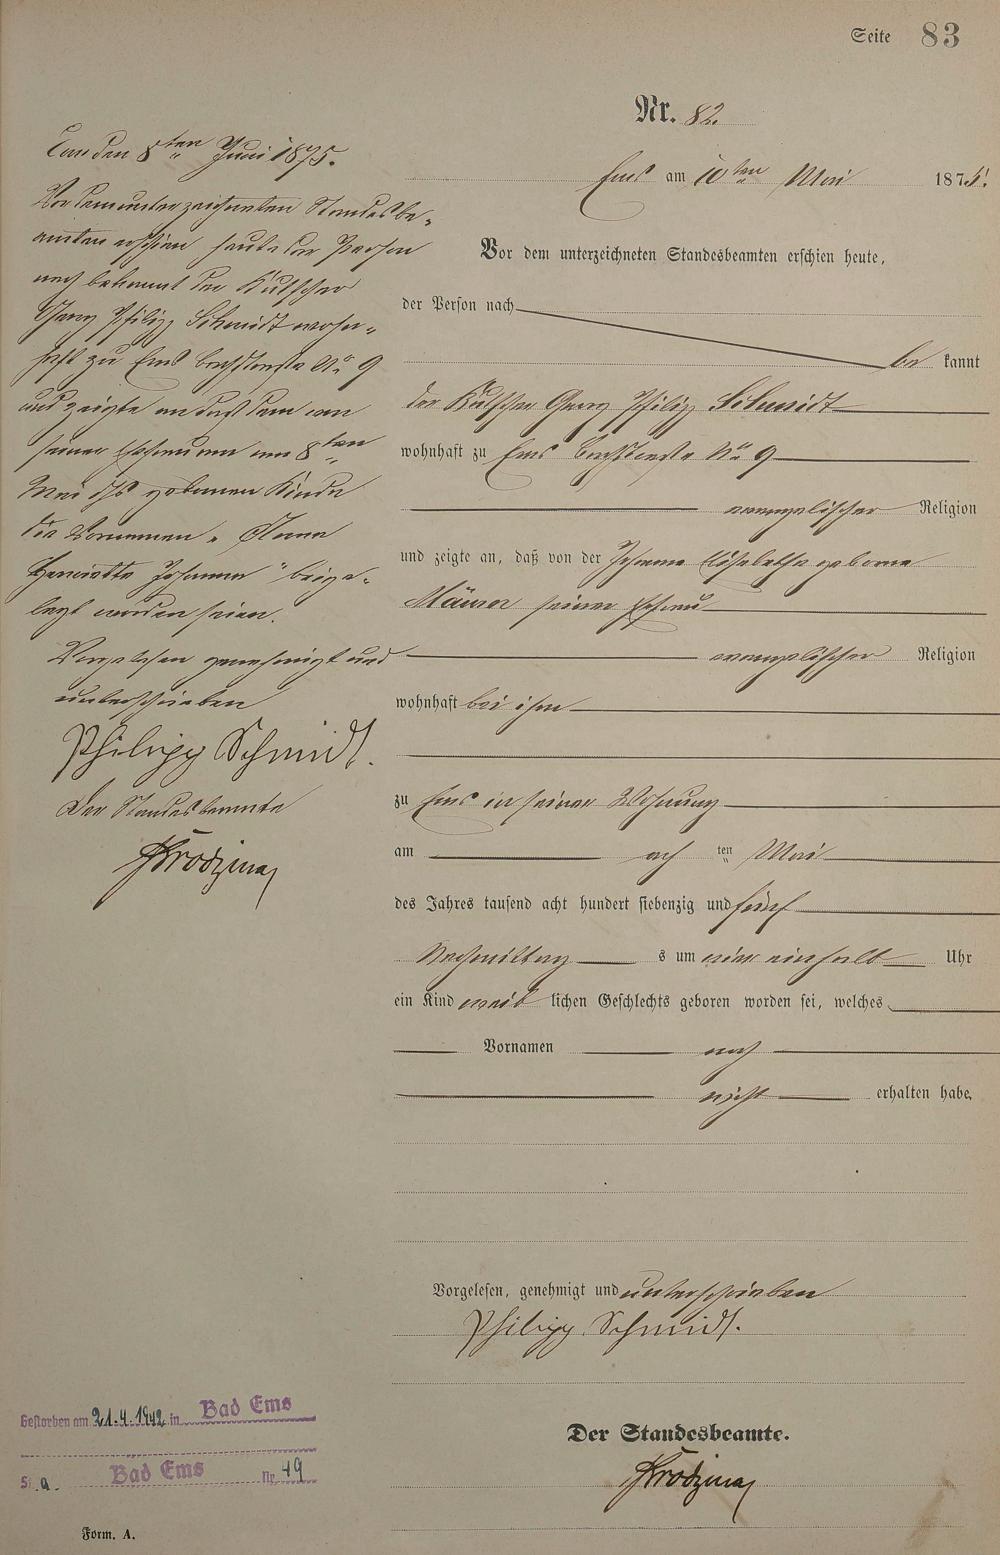 Seite 83
Nr. 82.
Ems am 10ten Mai 1875.
Vor dem unterzeichneten Standesbeamten erschien heute,
der Person nach
be kannt
der Kutscher Georg Philipp Schmidt
wohnhaft zu Ems No 9
evangelischer Religion
und zeigte an, daß von der Johanna Elisabetha geborne
Mäurer seiner Ehefrau
evangelischer Religion
wohnhaft bei ihm
zu Ems in seiner Wohnung
am ach ten Mai
des Jahres tausend acht hundert siebenzig und fünf
Nachmittag s um einhalb Uhr
ein Kind weib lichen Geschlechts geboren worden sei, welches
Vornamen noch
nicht erhalten habe.
Vorgelesen, genehmigt und unterschrieben
Philipp Schmidt.
Der Standesbeamte.
Ems den 8ten Juni 1875.
Vor dem unterzeichneten Standesbe-
amten erschien heute der Person
nach bekannt der Kutscher
Georg Philipp Schmidt wohn-
haft zu Ems No 9
und zeigte an daß dem von
seiner Ehefrau am 8ten
Mai geborenen Kinde
die Vornamen "Anna
Henriette Johanna" beige-
legt worden seien.
Vorgelesen genehmigt und
unterschrieben
Philipp Schmidt.
Der Standesbeamte
Gestorben am 21.4.1942 in Bad Ems
St. a. Bad Ems Nr. 49
Form. A.